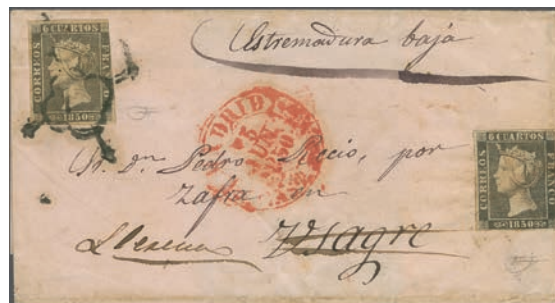 6 CUARTOS
CORREOS
FRANCO
1850
Estremadura baja
MADRID
JUN
Sr. Dn. Pedro Riccio, por
Zafra en
Llerena
Usagre
6 CUARTOS
CORREOS
FRANCO
1850